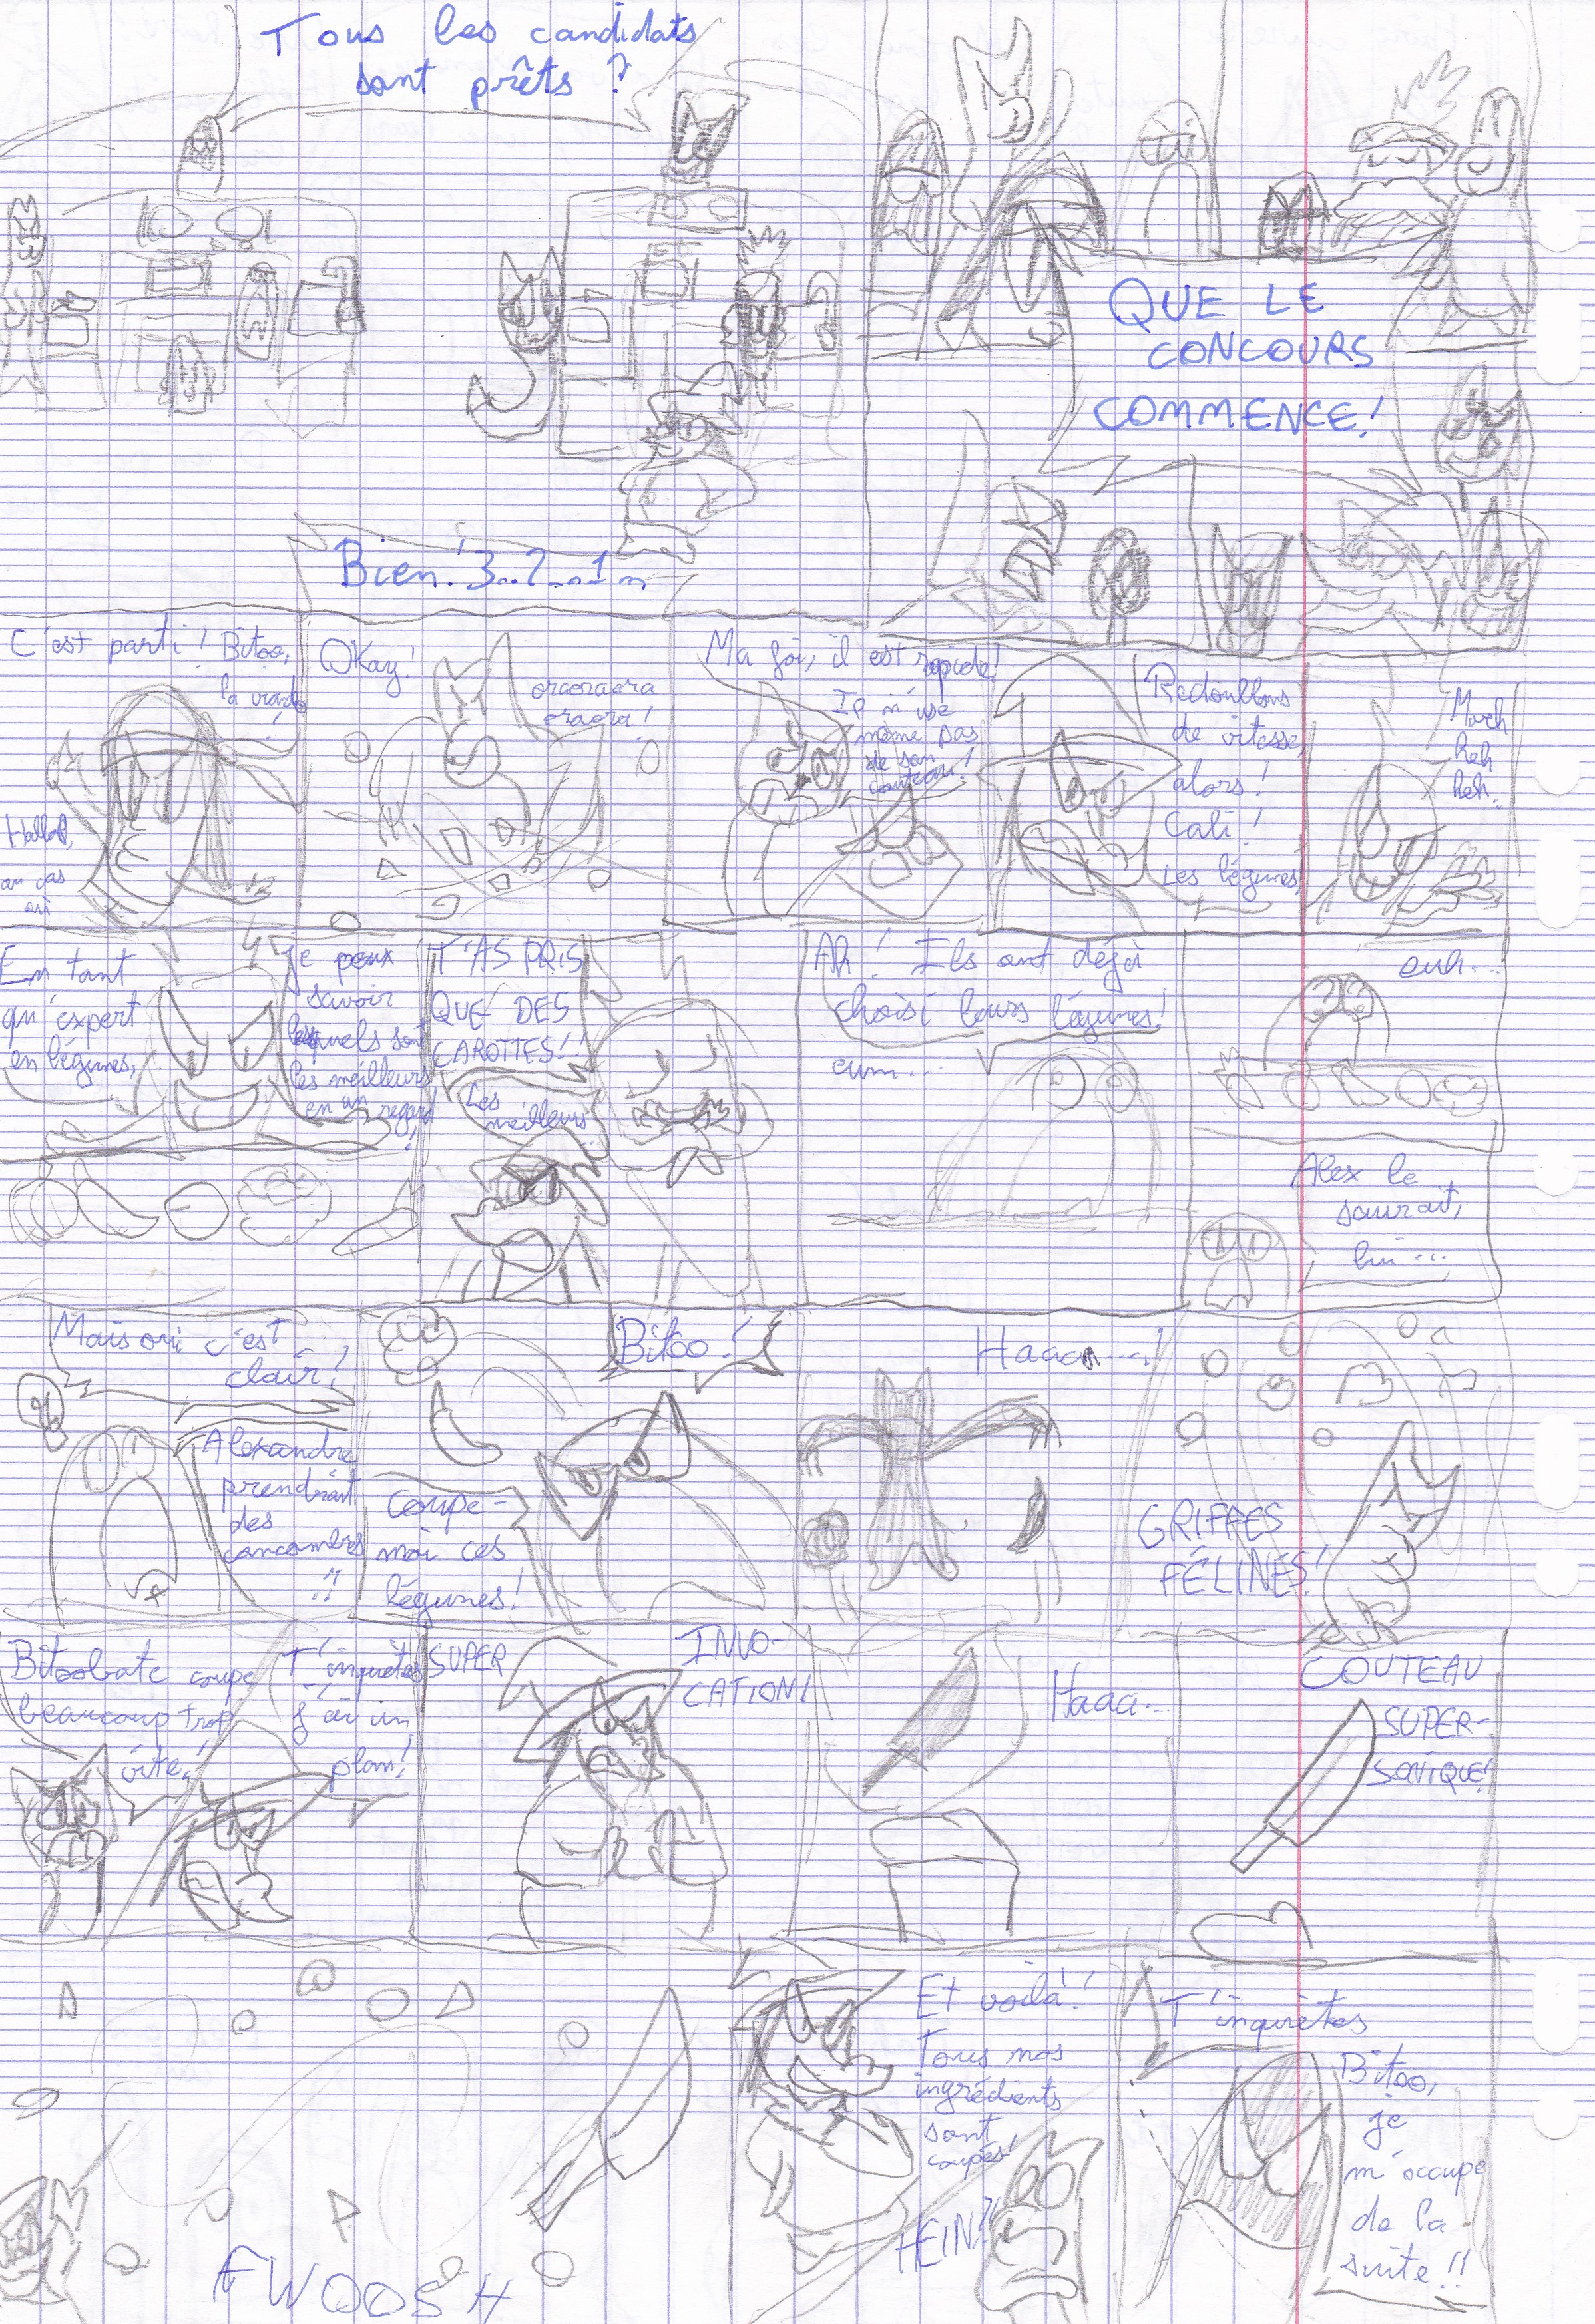 Tous les candidats
sont prêts ?
Bien ! 3...2...1...
QUE LE
CONCOURS
COMMENCE !
C'est parti ! Bitoo,
la viande
!
au cas
où
Okay !
oraoraora
oraora !
Ma foi, il est rapide !
Il n'use
même pas
de son
couteau !
Redoublons
de vitesse,
alors !
Cali !
Les légumes
heh
heh.
En tant
qu'expert
en légumes,
Je peux
savoir
lesquels sont
les meilleurs
en un regard
!
T'AS PRIS
QUE DES
CAROTTES !!
Les
meilleurs
Ah ! Ils ont déjà
choisi leurs légumes !
eum...
euh...
Alex le
saurait,
lui...
Mais oui c'est
clair !
Alexandre
prendrait
des
concombres
!!
Bitoo !
Coupe-
moi ces
légumes !
Haaaa....!
GRIFFES
FÉLINES !
Bitoobate coupe
beaucoup trop
vite !
T'inquiètes
J'ai un
plan !
SUPER
INVO-
CATION !
Haaa...
COUTEAU
SUPER-
SONIQUE !
FWOOSH
Et voilà !
Tous nos
ingrédients
sont
coupés !
HEIN ?!
T'inquiètes
Bitoo,
je
m'occupe
de la
suite !!